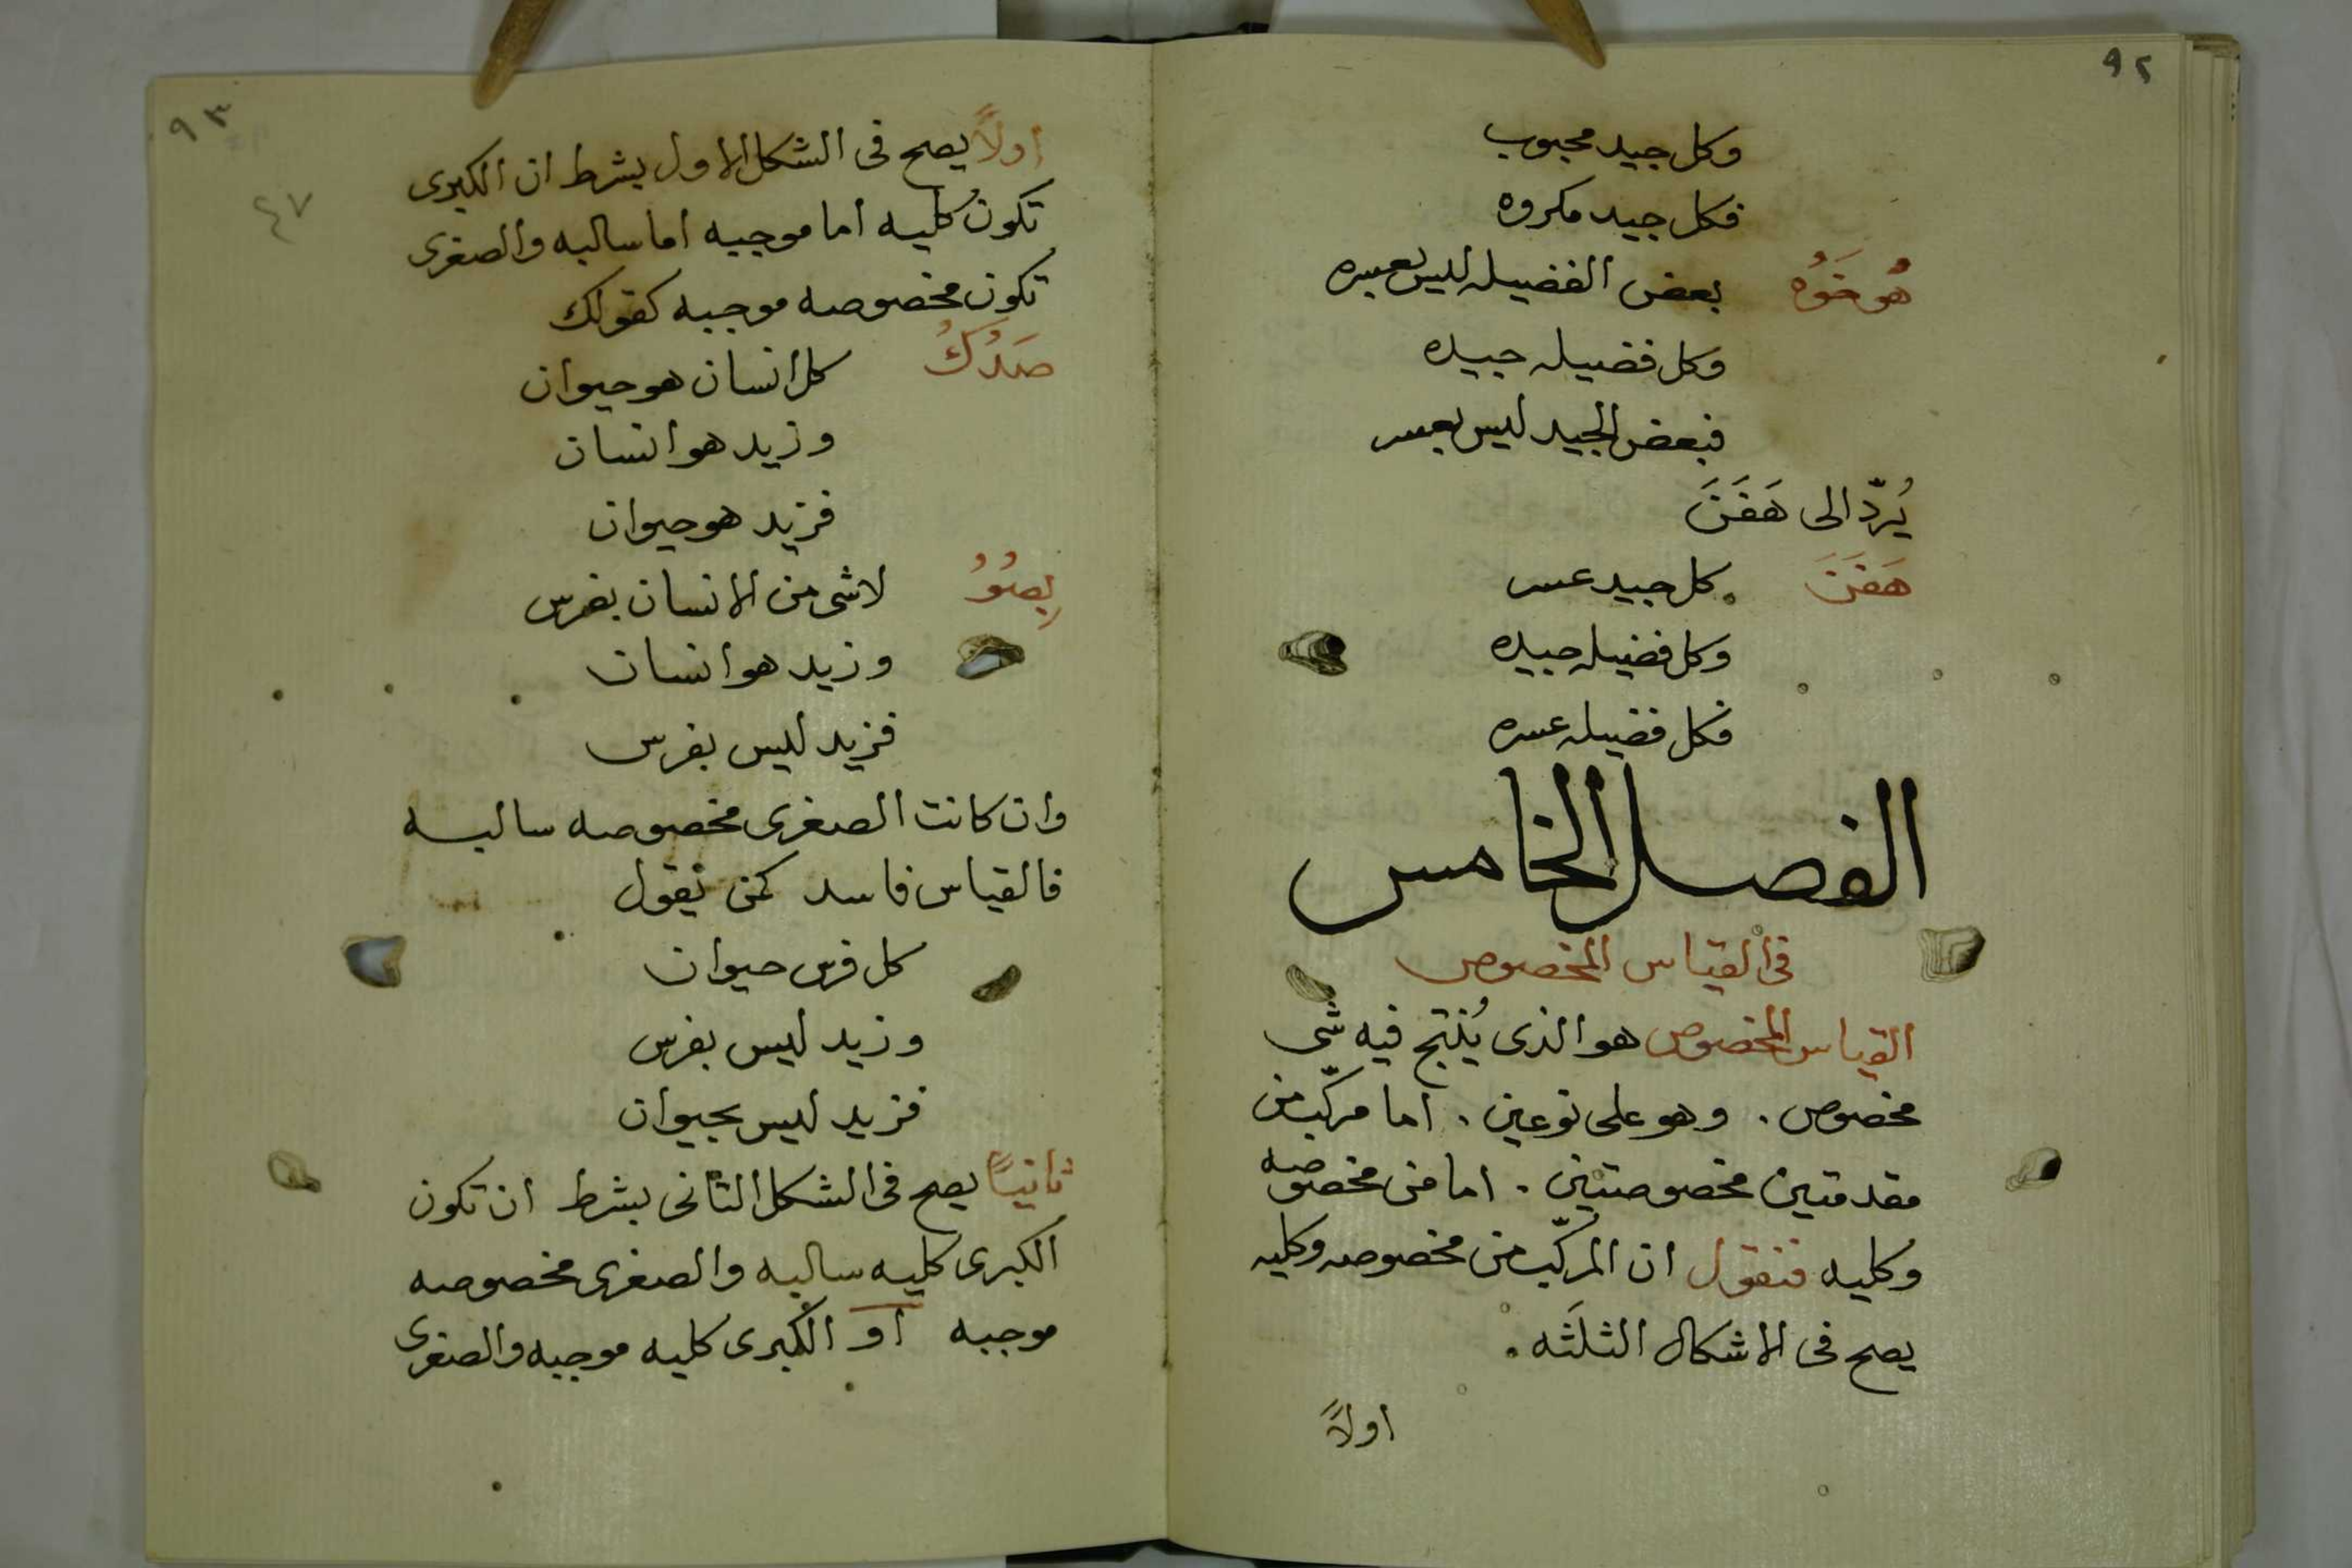 ٩٢
وكل جيد محبوب
فكل جيد مكروه
هُوخَوُه بعض الفضيله ليس بعسره
وكل فضيله جيده
فبعض الجيد ليس بعسر
يُردّ الى هَفَنَ
هَفَنَ كل جيد عسر
وكل فضيله جيده
فكل فضيله عسره
الفصل الخامس
فى القياس المخصوص
القياس المخصوص هو الذى يُنتج فيه شى
مخصوص . وهو على نوعين . اما مركّب من
مقدمتين مخصوصتين . اما من مخصوصه
وكليه فنقول ان المركّب من مخصوصه وكليه
يصح فى الاشكال الثلثه .
اولاً
٩٣
٤٧
اولاً يصح فى الشكل الاول بشرط ان الكبرى
تكون كليه اما موجبه اما سالبه والصغرى
تكون مخصوصه موجبه كقولك
صَدُكُ كل انسان هو حيوان
وزيد هو انسان
فزيد هو حيوان
بِصُوُ لاشى من الانسان بفرس
وزيد هو انسان
فزيد ليس بفرس
وان كانت الصغرى مخصوصه سالبه
فالقياس فاسد كمن يقول
كل فرس حيوان
وزيد ليس بفرس
فزيد ليس بحيوان
ثانيًا يصح فى الشكل الثانى بشرط ان تكون
الكبرى كليه سالبه والصغرى مخصوصه
موجبه او الكبرى كليه موجبه والصغرى